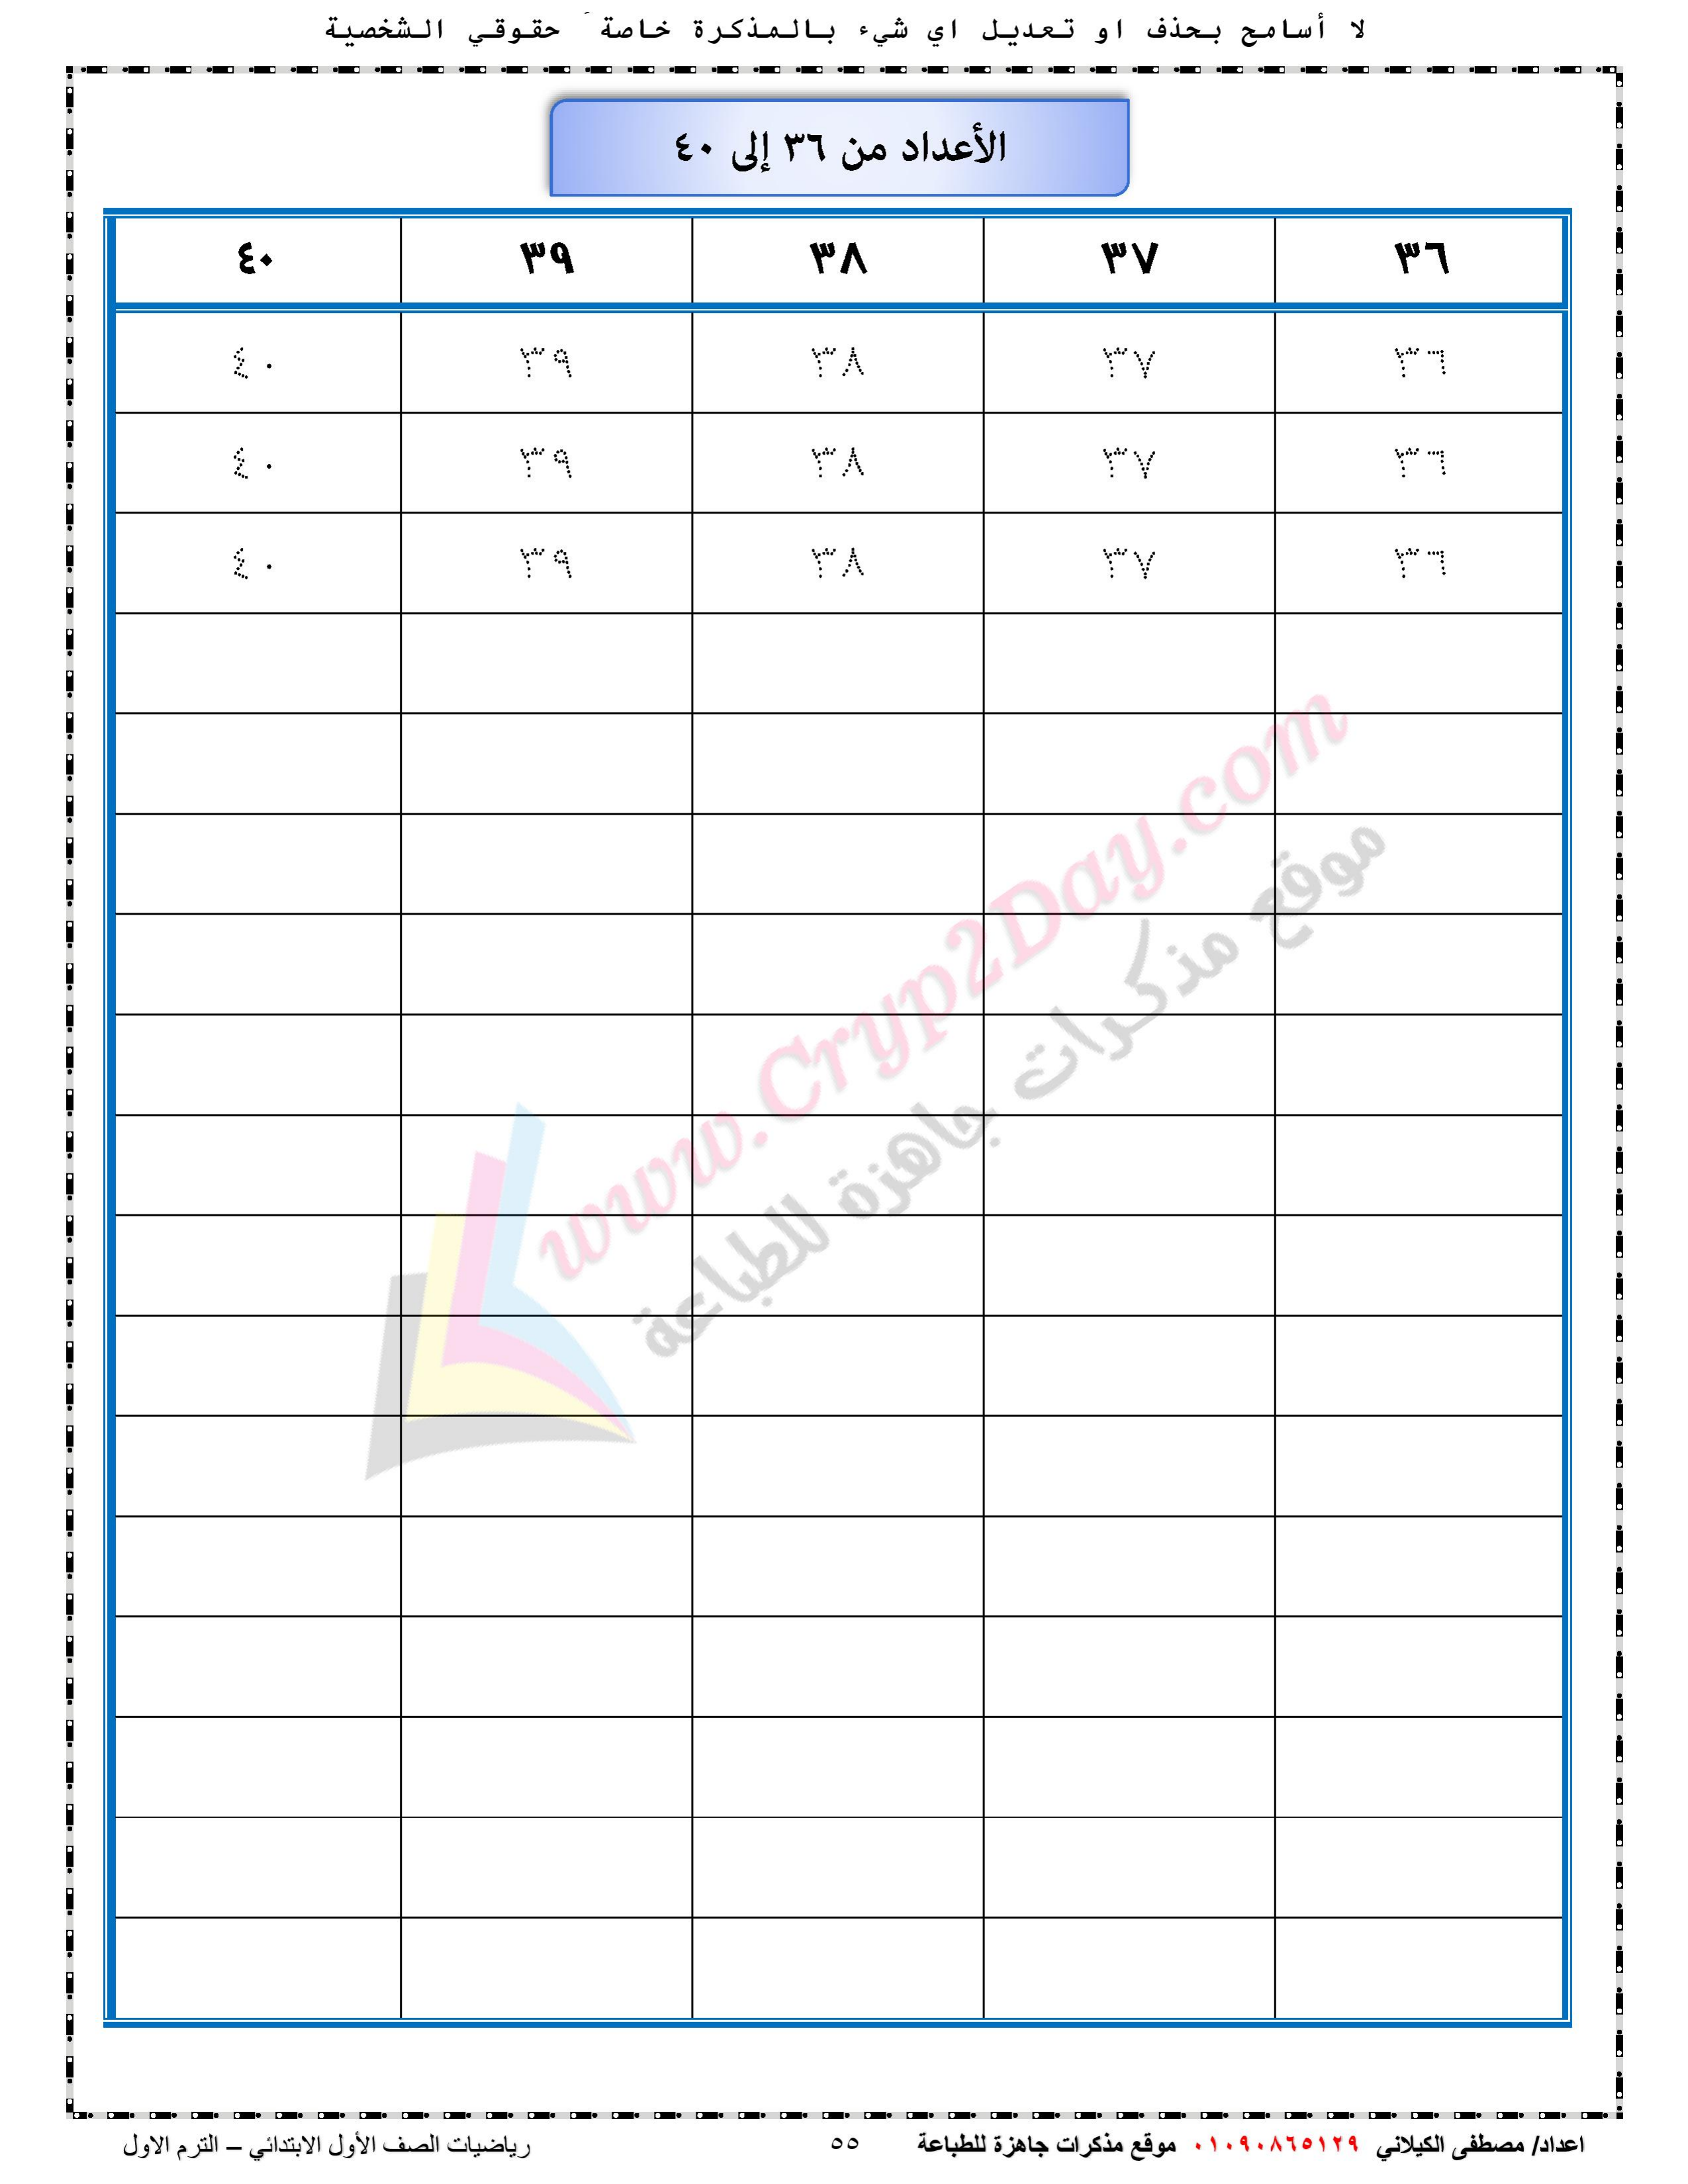 لا أسامح بحذف او تعديل اي شيء بالمذكرة خاصة ً حقوقي الشخصية
الأعداد من ٣٦ إلى ٤٠
٣٦ ٣٧ ٣٨ ٣٩ ٤٠
٣٦ ٣٧ ٣٨ ٣٩ ٤٠
٣٦ ٣٧ ٣٨ ٣٩ ٤٠
٣٦ ٣٧ ٣٨ ٣٩ ٤٠
www.Cryp2Day.com
موقع مذكرات جاهزة للطباعة
اعداد/ مصطفى الكيلاني ٠١٠٩٠٨٦٥١٢٩ موقع مذكرات جاهزة للطباعة ٥٥ رياضيات الصف الأول الابتدائي – الترم الاول